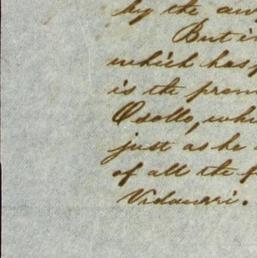 by the
But i
which has
is the prem
Osollo, whi
just as he
of all the f
Vidaurri.